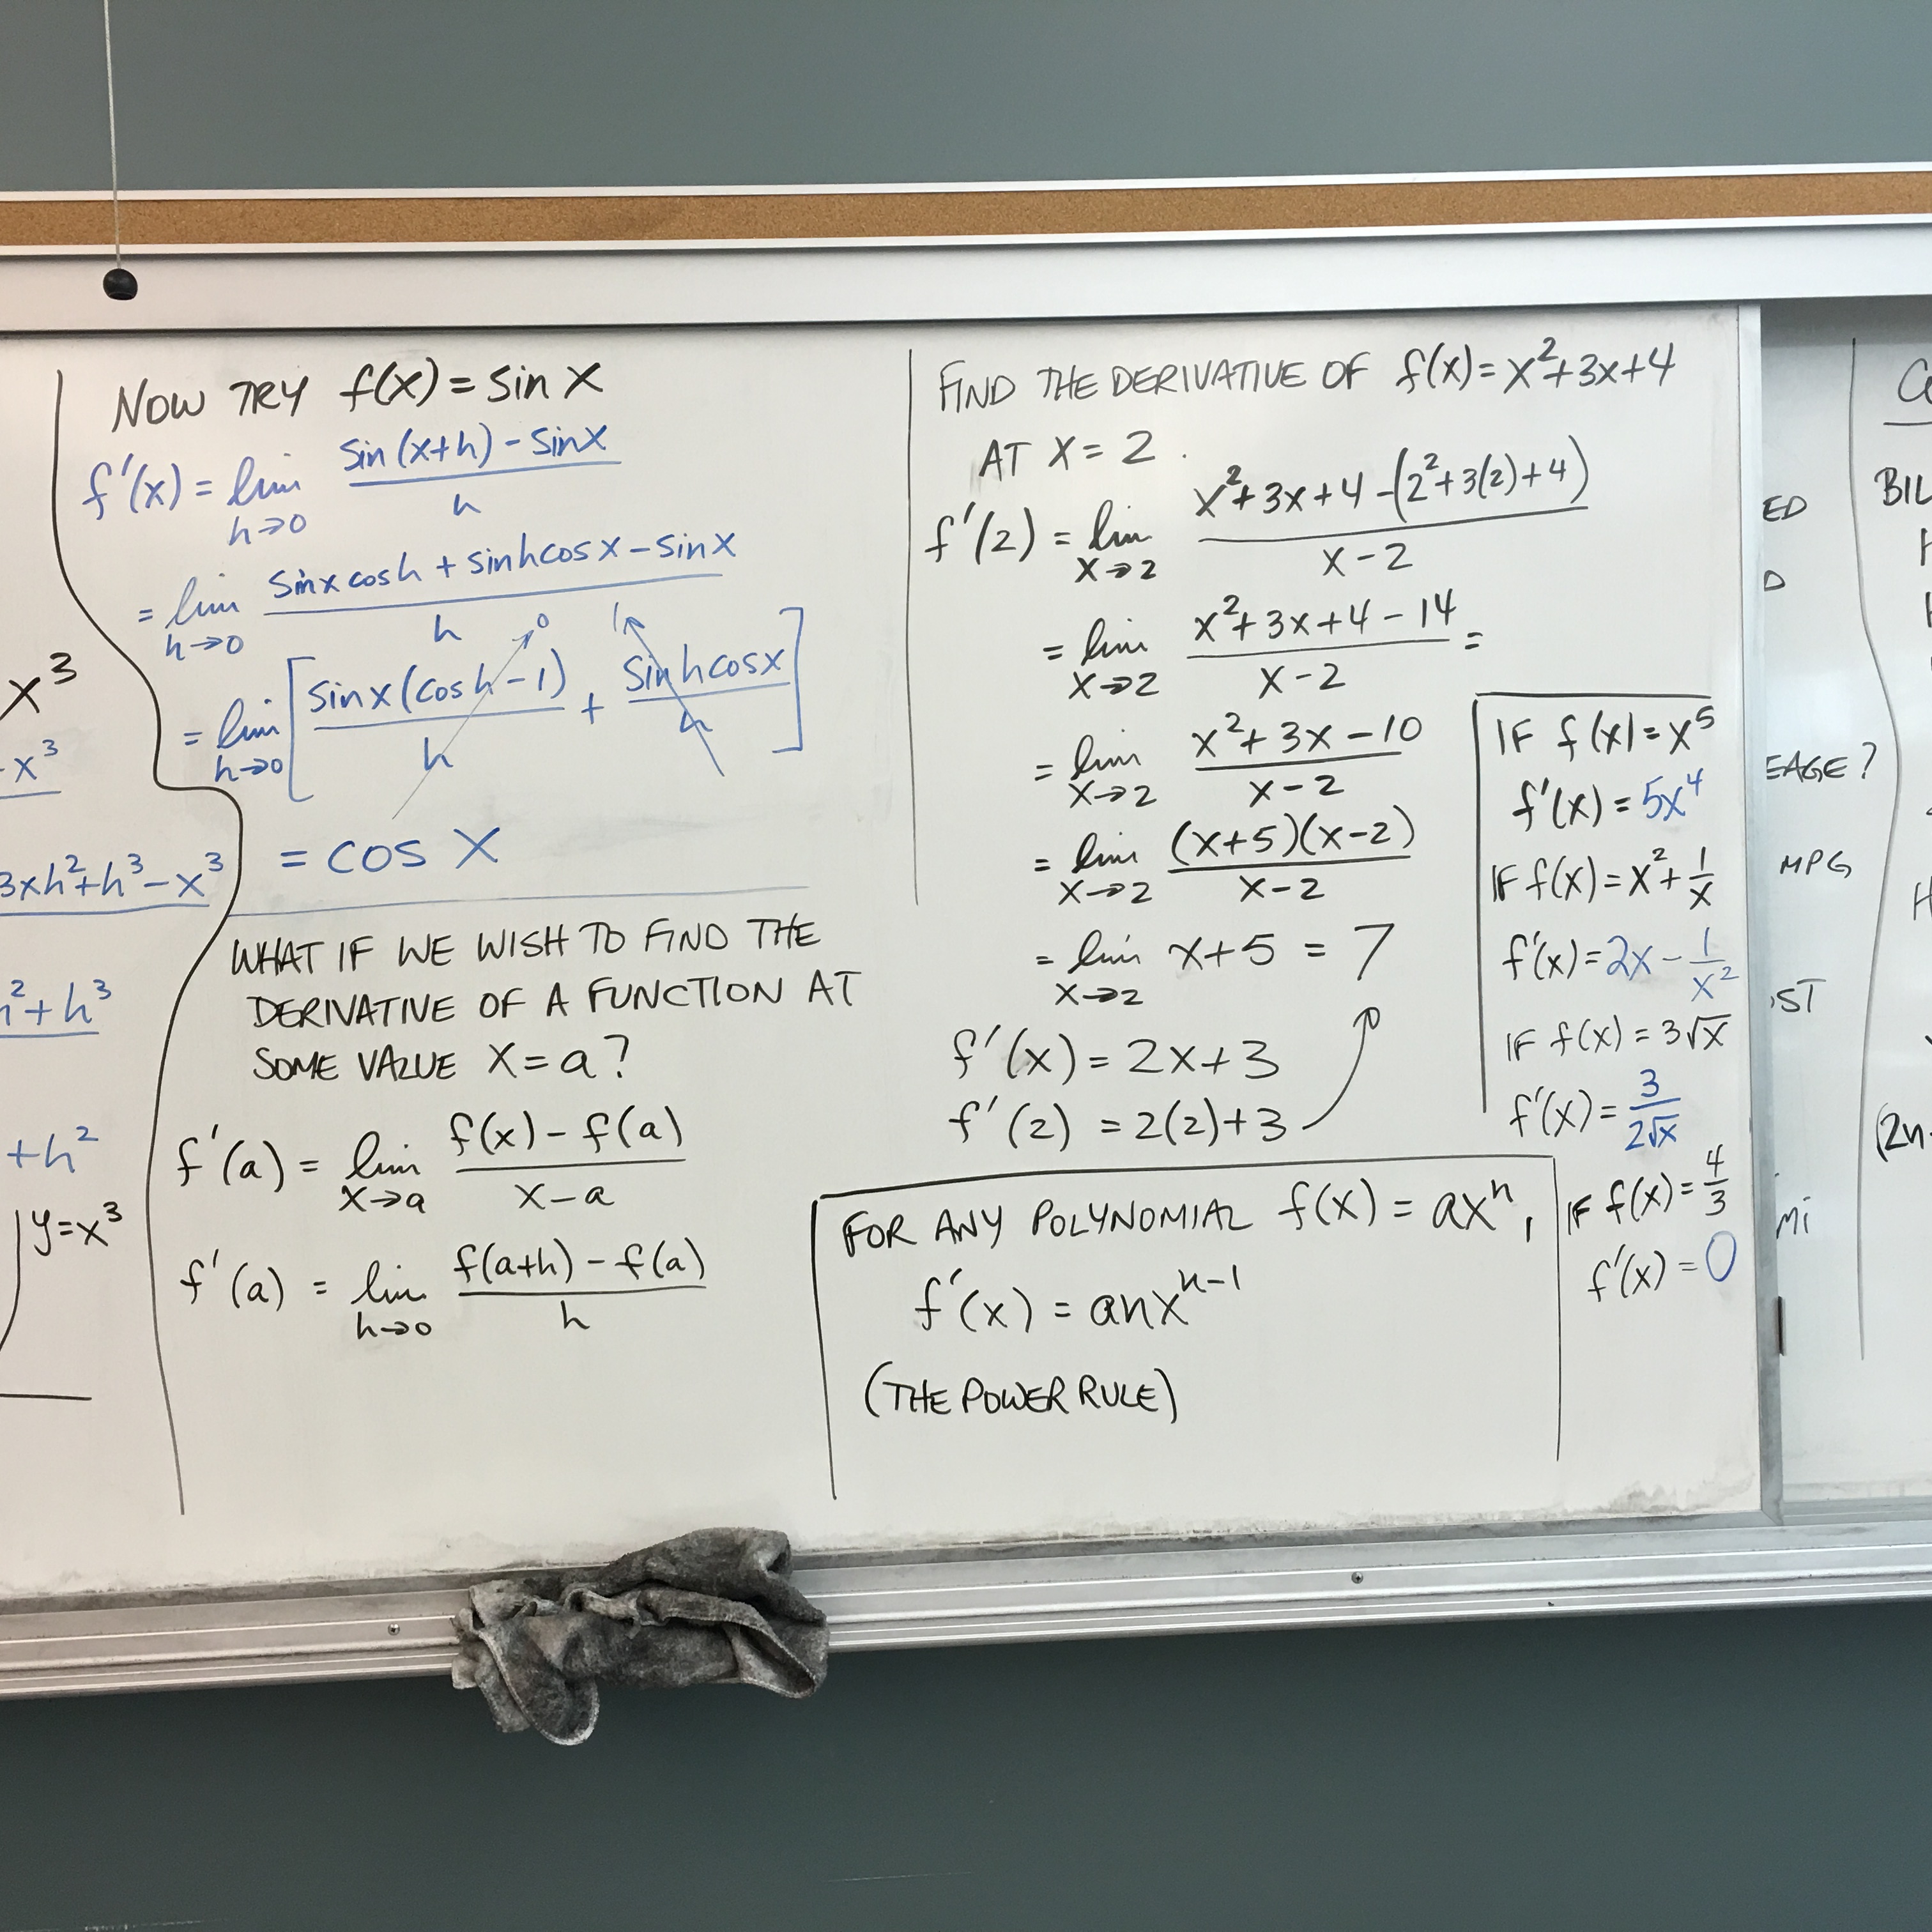 x³
-x³
3xh²+h³-x³
h²+h³
+h²
y=x³
NOW TRY f(x) = sin x
f'(x) = lim h→0 (sin(x+h) - sin x)/h
= lim h→0 (sin x cos h + sin h cos x - sin x)/h
= lim h→0 [ (sin x (cos h - 1))/h → 0 + (sin h cos x)/h → 1 ]
= cos x
WHAT IF WE WISH TO FIND THE
DERIVATIVE OF A FUNCTION AT
SOME VALUE X = a?
f'(a) = lim x→a (f(x) - f(a))/(x - a)
f'(a) = lim h→0 (f(a+h) - f(a))/h
FIND THE DERIVATIVE OF f(x) = x²+3x+4
AT X = 2.
f'(2) = lim x→2 (x²+3x+4-(2²+3(2)+4))/(x-2)
= lim x→2 (x²+3x+4-14)/(x-2) =
= lim x→2 (x²+3x-10)/(x-2)
= lim x→2 ((x+5)(x-2))/(x-2)
= lim x→2 x+5 = 7
f'(x) = 2x+3
f'(2) = 2(2)+3
FOR ANY POLYNOMIAL f(x) = axⁿ,
f'(x) = anxⁿ⁻¹
(THE POWER RULE)
IF f(x) = x⁵
f'(x) = 5x⁴
IF f(x) = x² + 1/x
f'(x) = 2x - 1/x²
IF f(x) = 3√x
f'(x) = 3/(2√x)
IF f(x) = 4/3
f'(x) = 0
ED
D
EAGE?
MPG
ST
mi
BIL
H
(2n